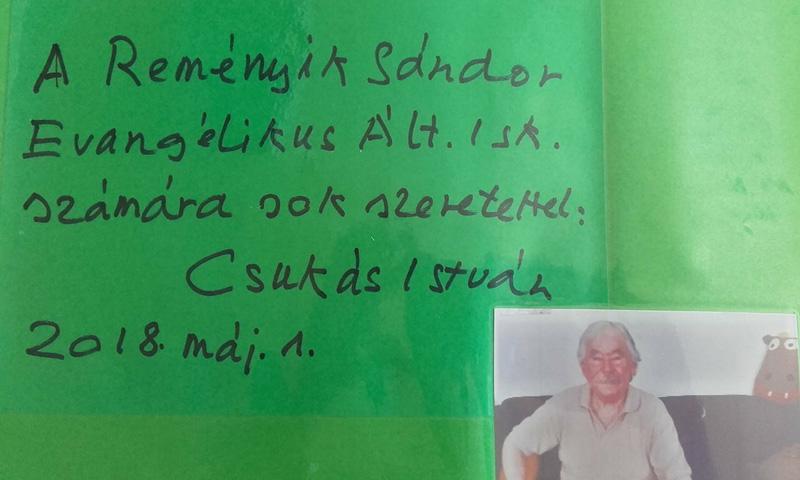 A Reményik Sándor
Evangélikus Ált. Isk.
számára sok szeretettel:
Csukás István
2018. máj. 1.